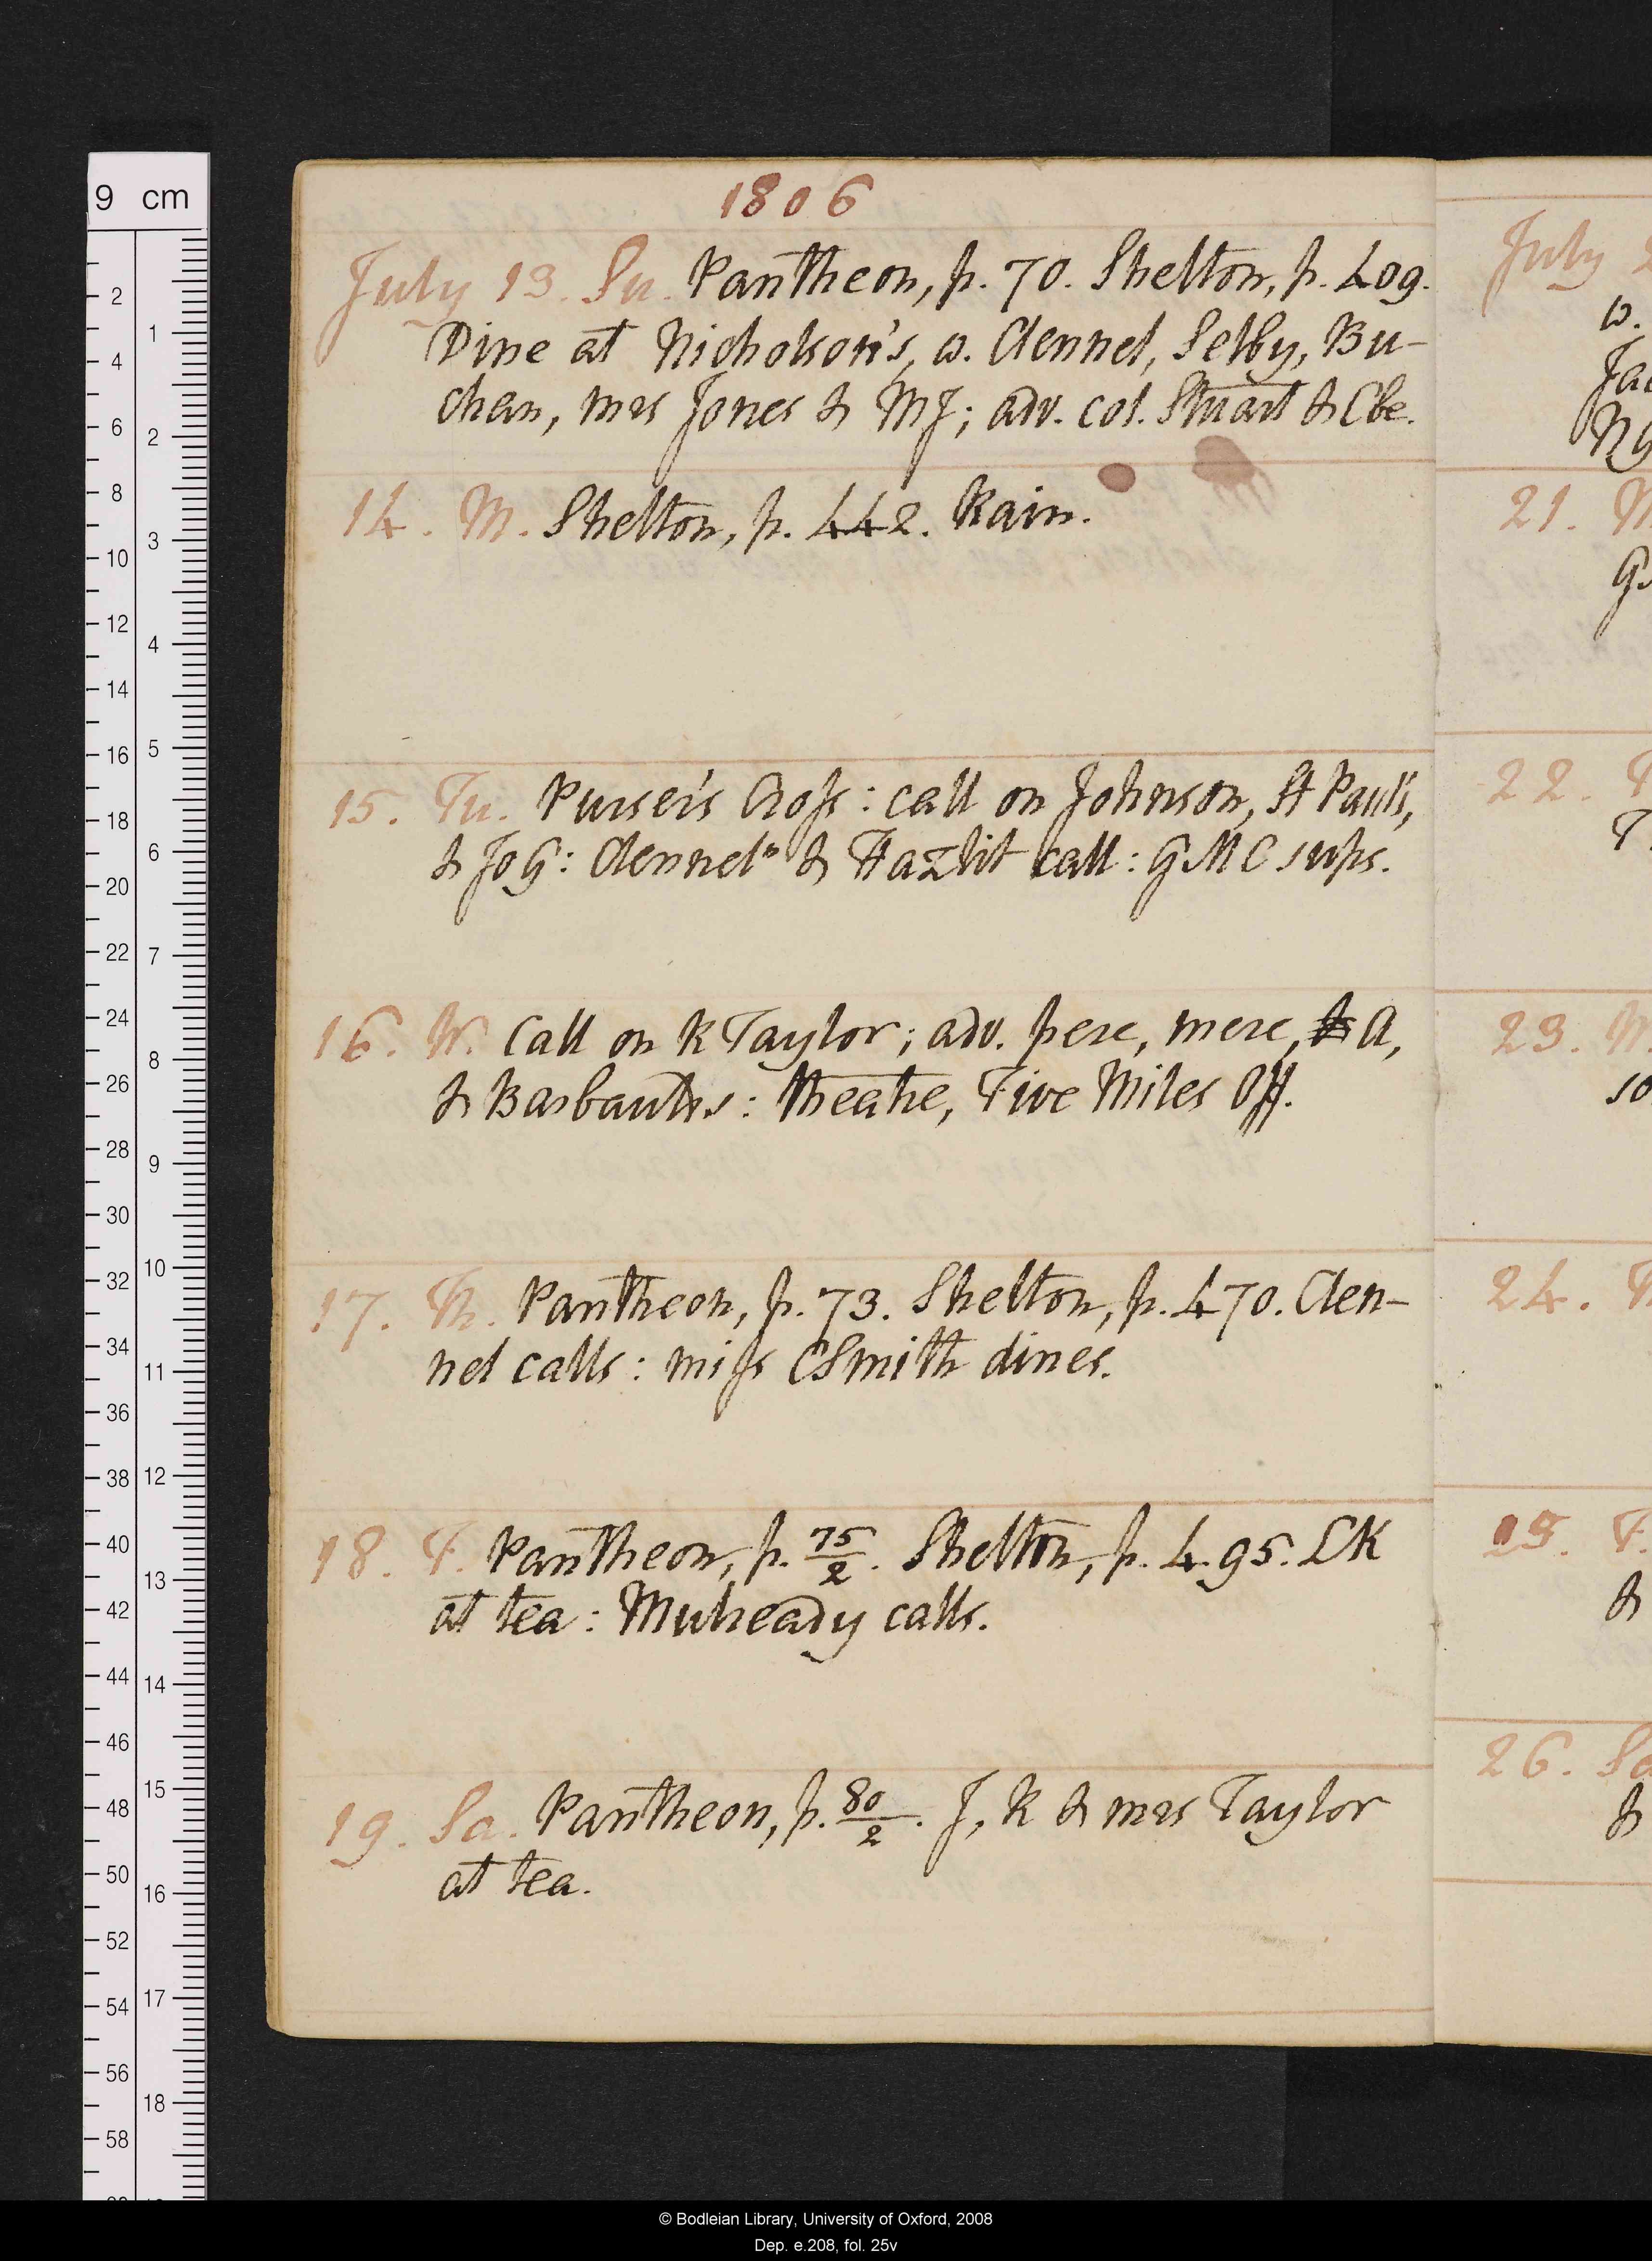 1806
July 13. Su. Pantheon, p. 70. Shelton, p. 409.
Dine at Nicholson's, w. Clennel, Selby, Bu-
chan, mrs Jones & MJ; adv. col. Stuart & Cbe.
14. M. Shelton, p. 442. Rain.
15. Tu. Purser's Cross: call on Johnson, St Paul's,
& Jo G: Clennel* & Hazlit call: GMC sups.
16. W. Call on R Taylor; adv. pere, mere, & A,
& Barbaulds: theatre, Five Miles Off.
17. Th. Pantheon, p. 73. Shelton, p. 470. Clen-
nel calls: miss CSmith dines.
18. F. Pantheon, p. 75/2. Shelton, p. 495. LK
at tea: Mulready calls.
19. Sa. Pantheon, p. 80/2. J, R & mrs Taylor
at tea.
July
w.
Ja
21. M
22. T
T
23. W
so
24. T
25. F.
&
26. Sa
&
9 cm
2
4
6
8
10
12
14
16
18
20
22
24
26
28
30
32
34
36
38
40
42
44
46
48
50
52
54
56
58
1
2
3
4
5
6
7
8
9
10
11
12
13
14
15
16
17
18
© Bodleian Library, University of Oxford, 2008
Dep. e.208, fol. 25v